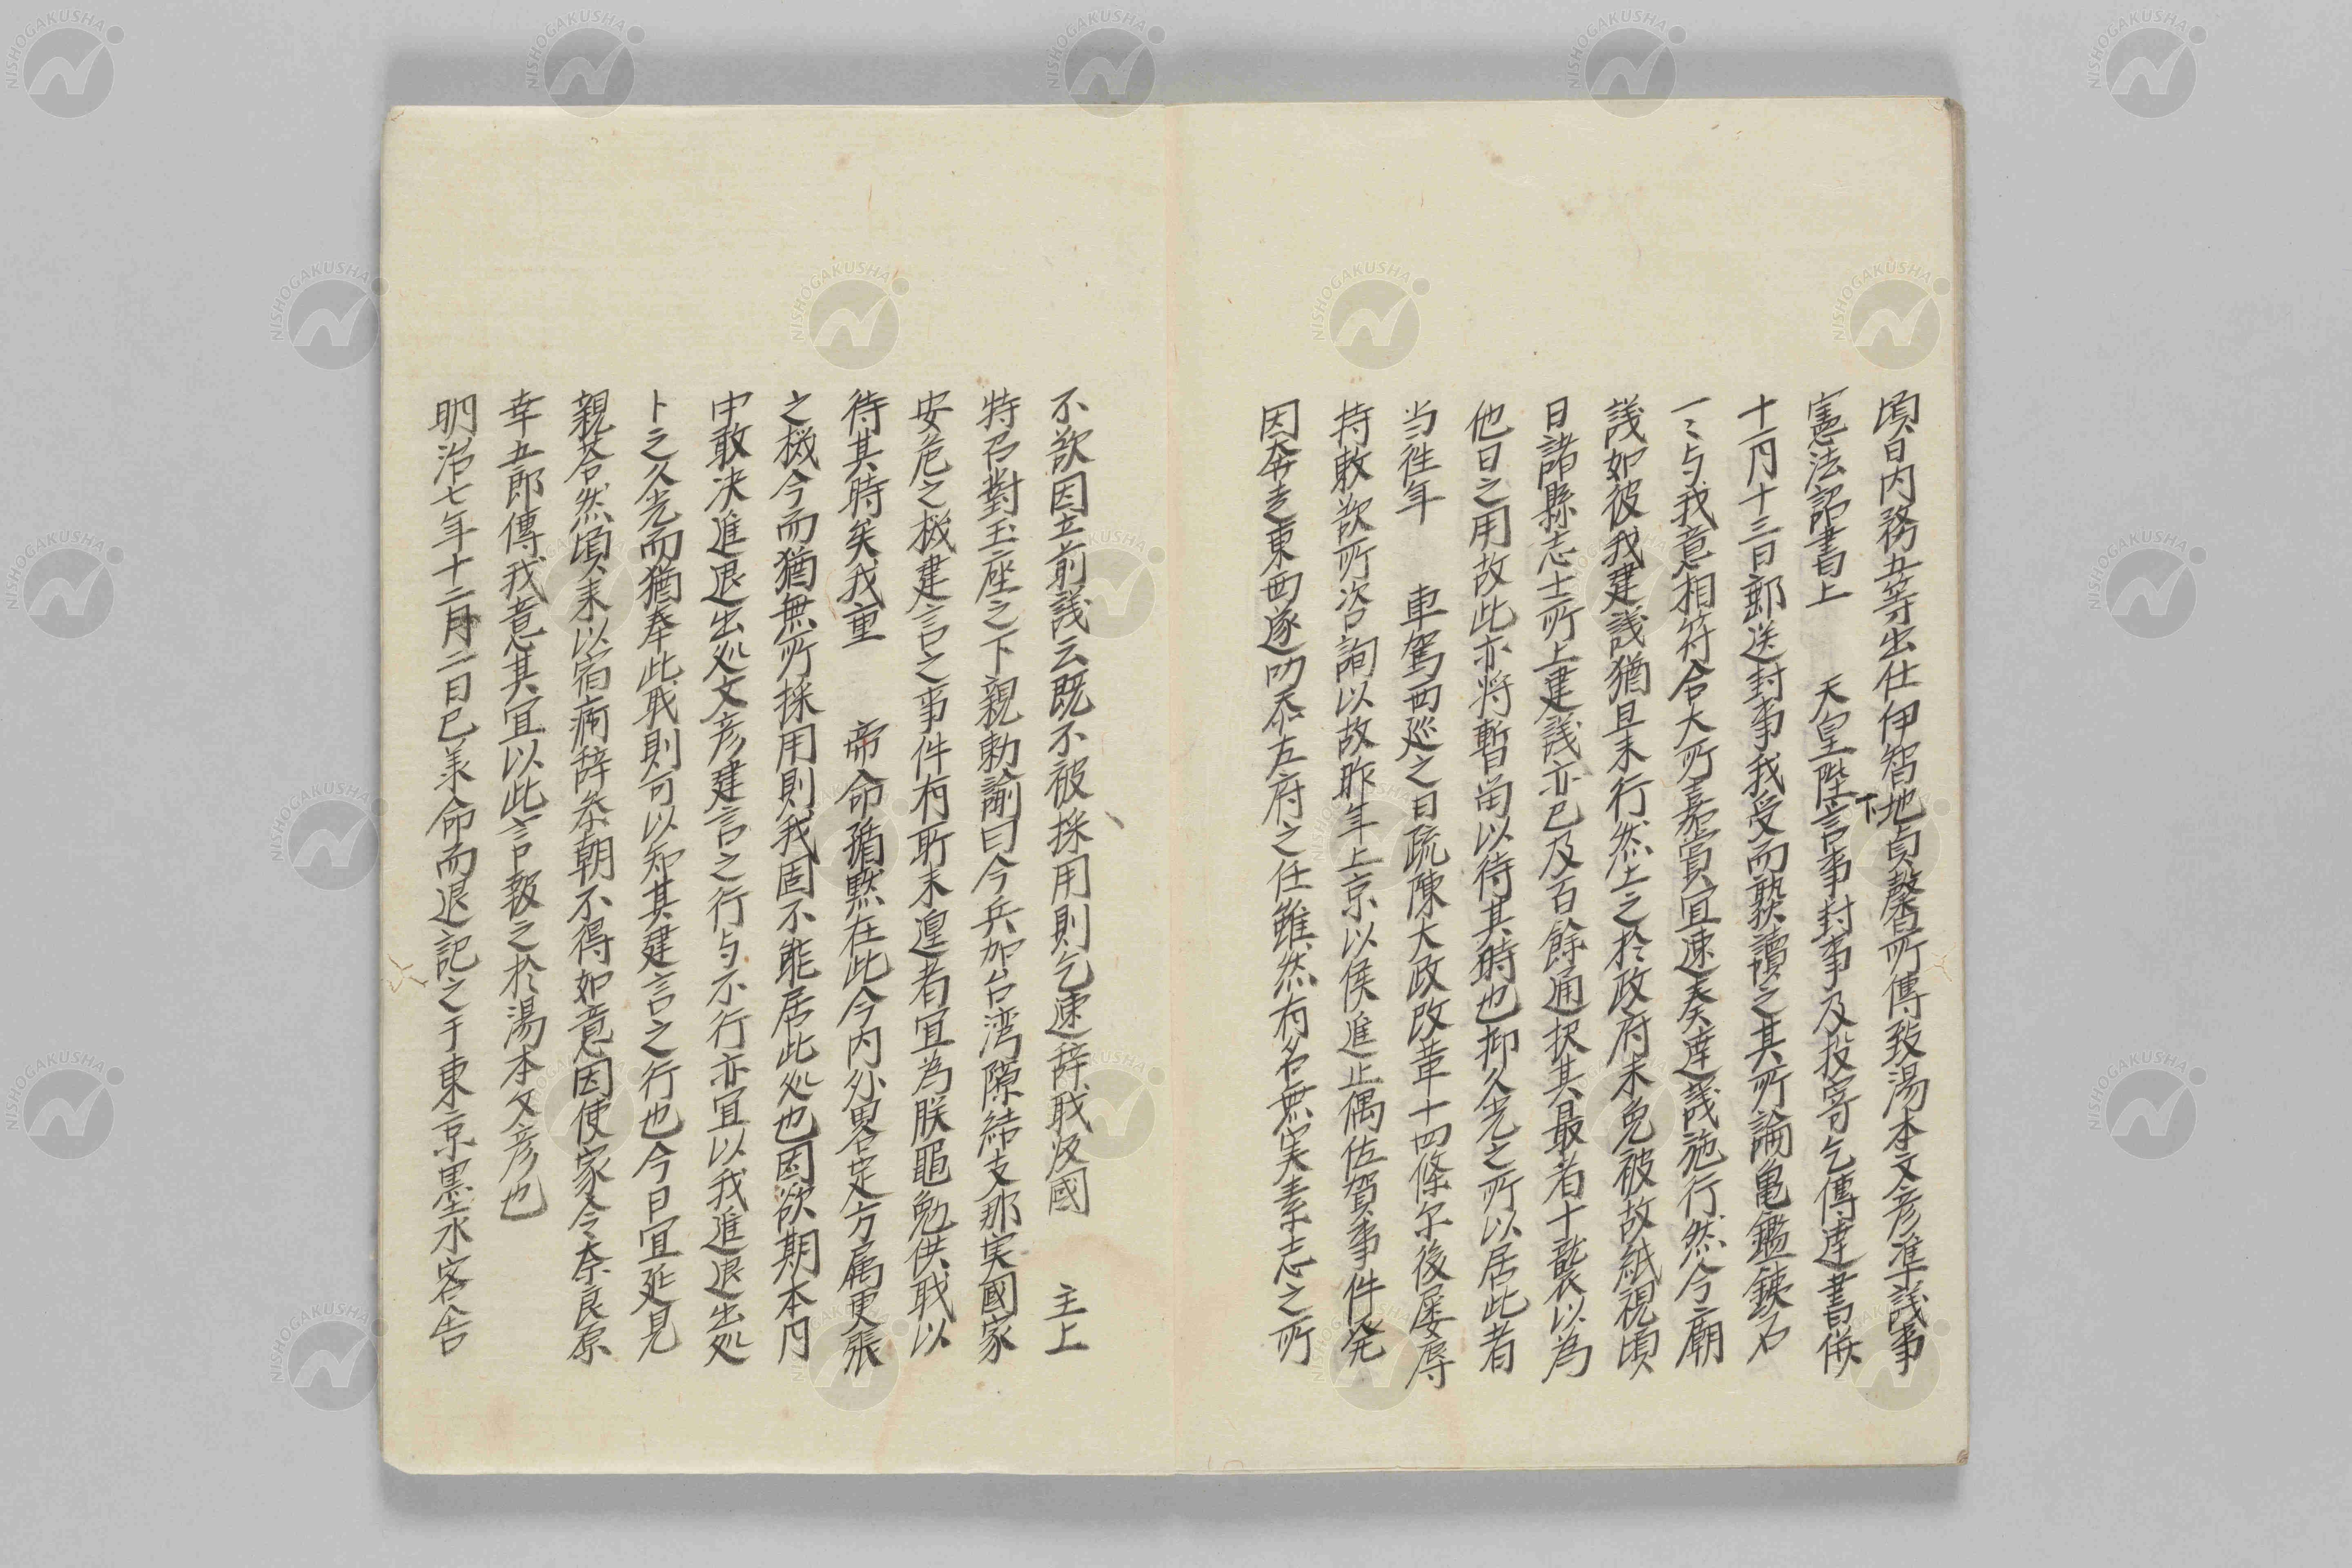 頃日内務五等出仕伊智地貞馨所傳致湯本文彦準議事
憲法詔書上　天皇陛下言事封事及投寄乞傳達書併
十一月十三日郵送封事我受而熟讀之其所論亀鑑銕石
一〻与我意相符合大所嘉賞宜速奏達議施行然今廟
議如彼我建議猶且未行然上之於政府未免被故紙視頃
日諸縣志士所上建議亦已及百餘通択其最者十襲以為
他日之用故此亦将暫留以待其時也抑久光之所以居此者
当徃年　車駕西廵之日疏陳大政改革十四條尓後屡辱
持敕欲所咨詢以故昨年上京以俟進止偶佐賀事件発
因奔走東西遂叨忝左府之任雖然有名無実素志之所
不欲因立前議云既不被採用則乞速辞職皈國　主上
特召對玉座之下親勅諭曰今兵加台湾隙結支那実國家
安危之機建言之事件有所未遑者宜為朕黽勉供職以
待其時矣我重　帝命循黙在此今内外畧定方属更張
之機今而猶無所採用則我固不能居此処也因欲期本月
中敢决進退出処文彦建言之行与不行亦宜以我進退出処
卜之久光而猶奉此職則可以知其建言之行也今日宜延見
親荅然頃来以宿痾辞参朝不得如意因使家令奈良原
幸五郎傳我意其宜以此言報之於湯本文彦也
明治七年十二月二日已羕命而退記之于東京墨水客舎
NISHOGAKUSHA